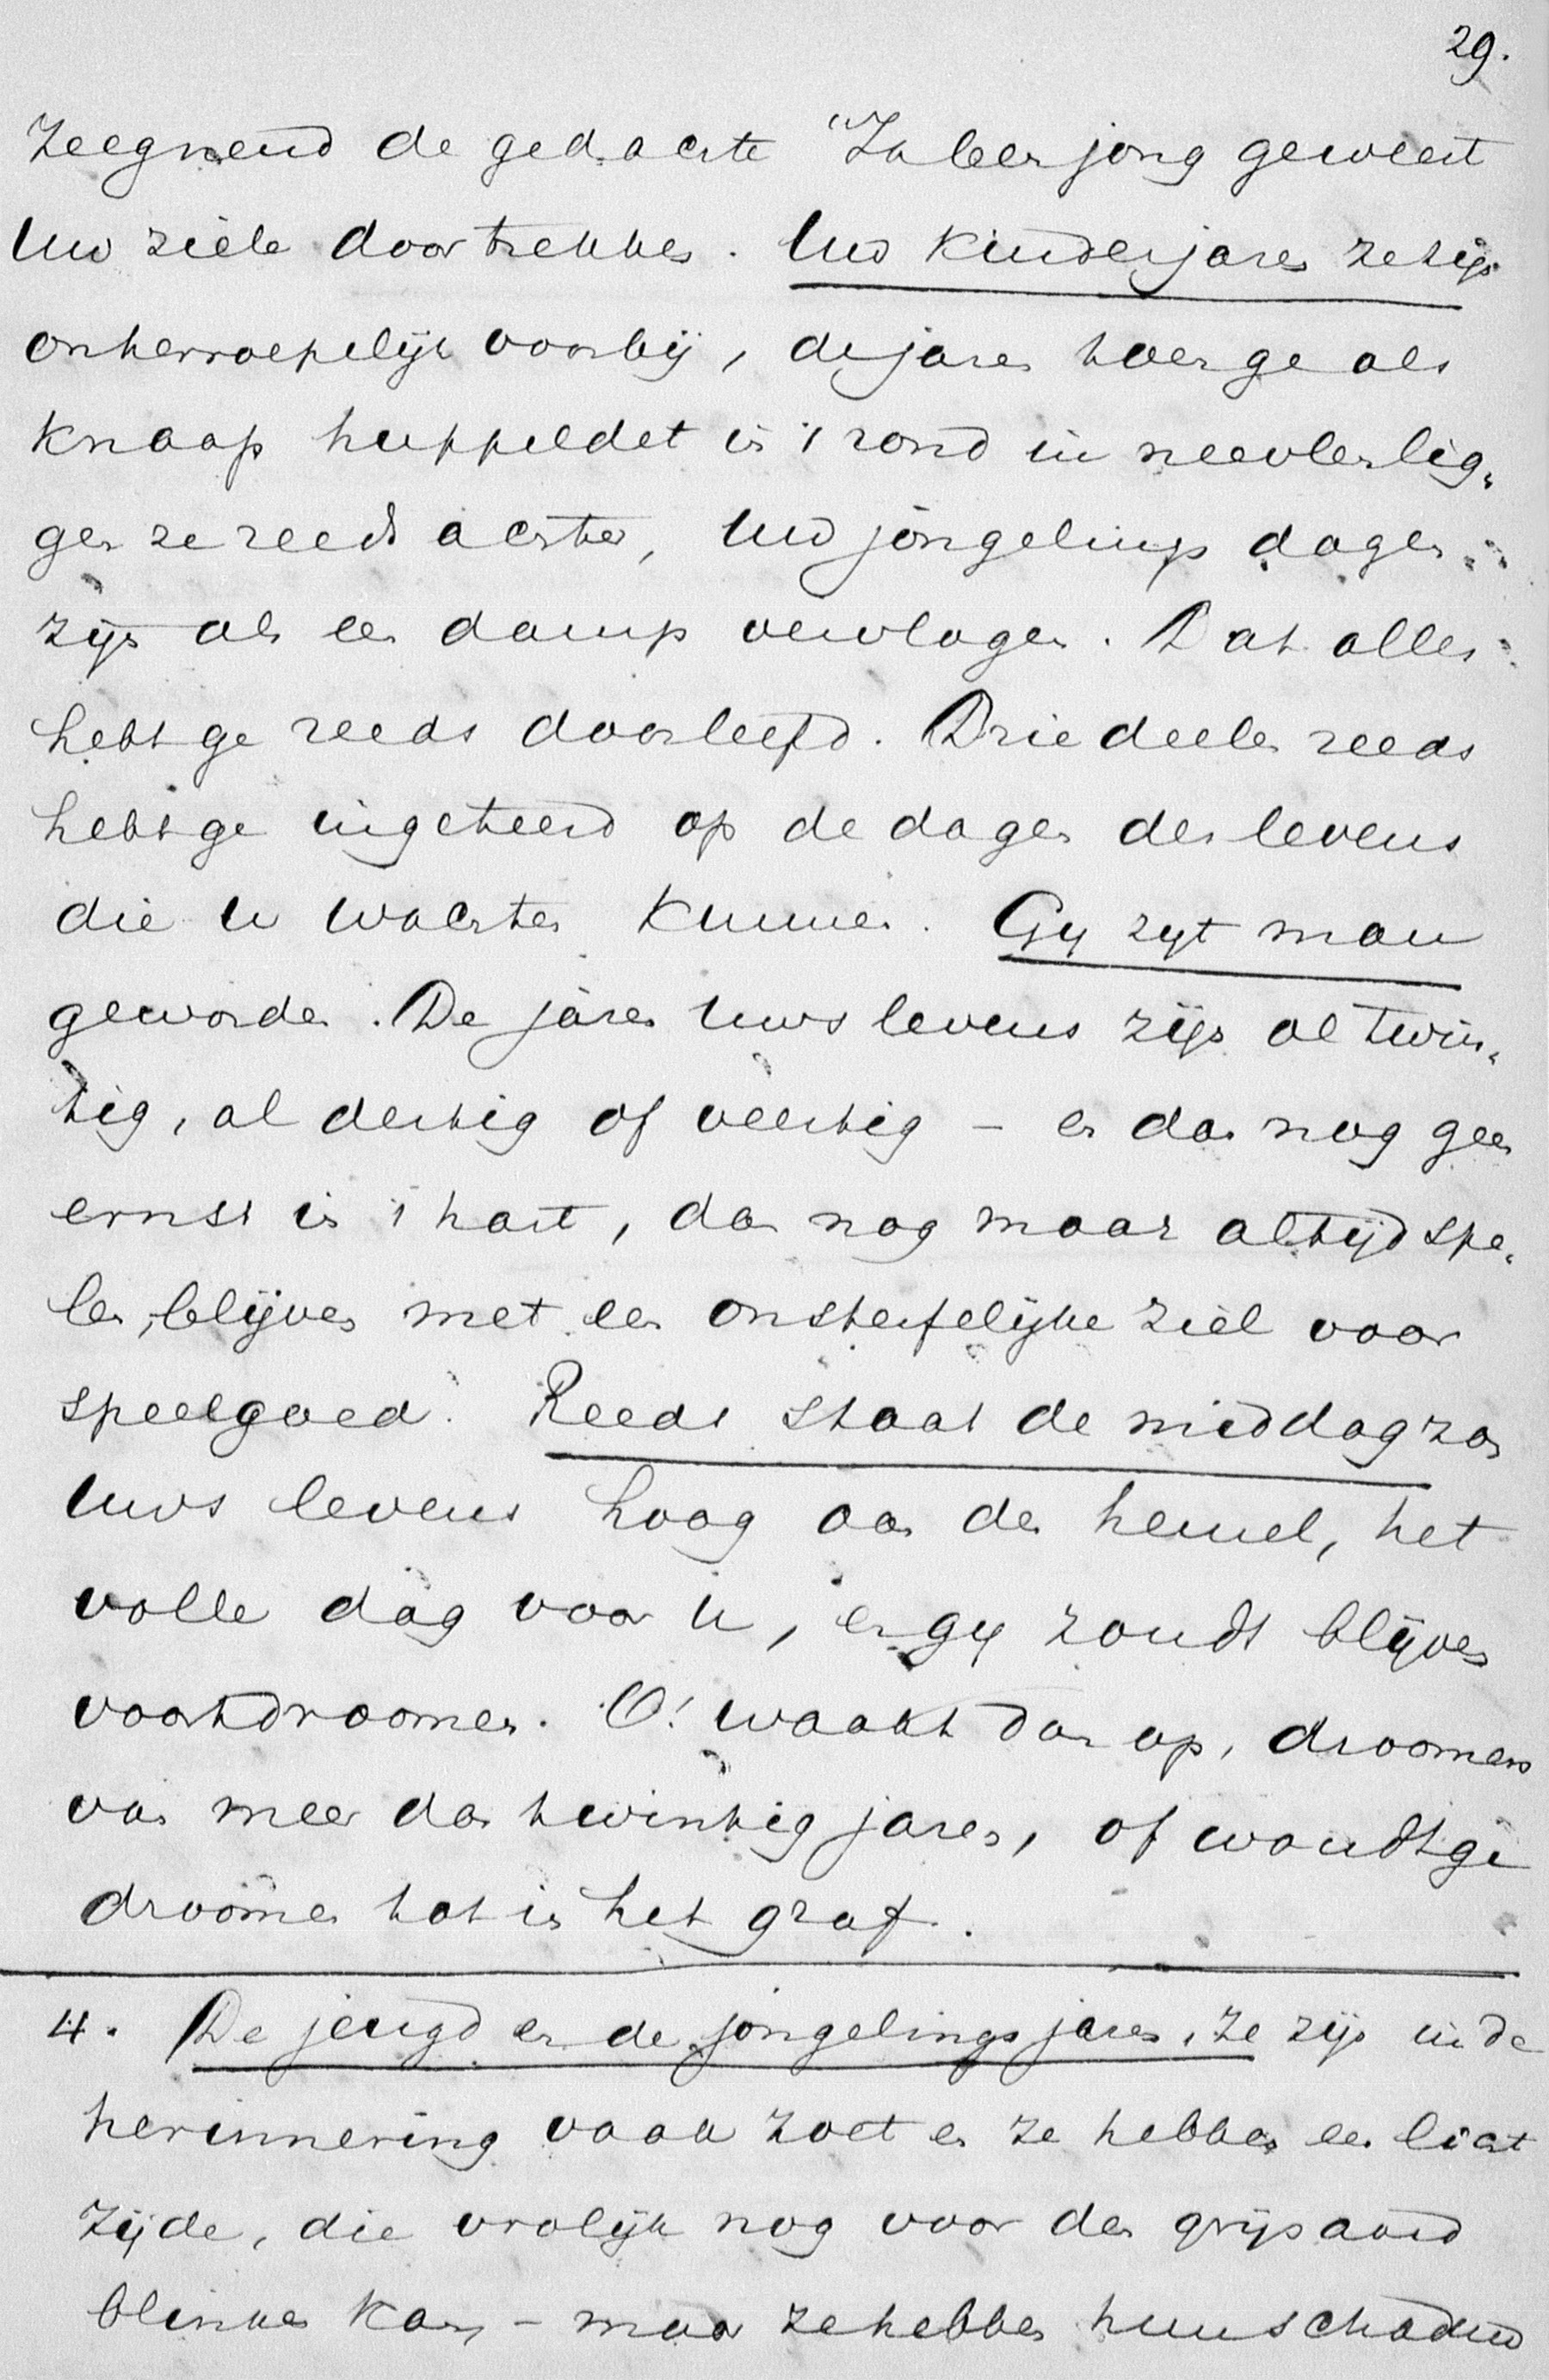 29.
zeegnend de gedachte "Ik ben jong geweest
Uw ziele doortrekken. Uw kinderjaren ze zijn
onherroepelijk voorbij, de jaren toen ge als
knaap huppeldet in 't rond in
gen ze reeds achter, Uw jongelings dagen
zijn als een damp vervlogen. Dat alles
hebt ge reeds doorleefd. Drie deelen reeds
hebt ge ingeteerd op de dagen des levens
die U wachten kunnen. Gy zyt man
geworden. De jaren Uws levens zijn al twin-
tig, al dertig of veertig – en dan nog geen
ernst in 't hart, dan nog maar altijd spe-
len, blijven met een onsterfelijke ziel voor
speelgoed. Reeds staat de middagzon
Uws levens hoog aan den hemel, het
volle dag voor U, en gy zoudt blijven
voortdroomen. O! waakt dan op, droomers
van meer dan twintig jaren, of woudt ge
droomen tot in het graf.
4. De jeugd en de jongelingsjaren, ze zijn in de
herinnering vaak zoet en ze hebben een licht
zijde, die vrolijk nog voor den grijsaard
blinken kan, – maar ze hebben hun schaduw